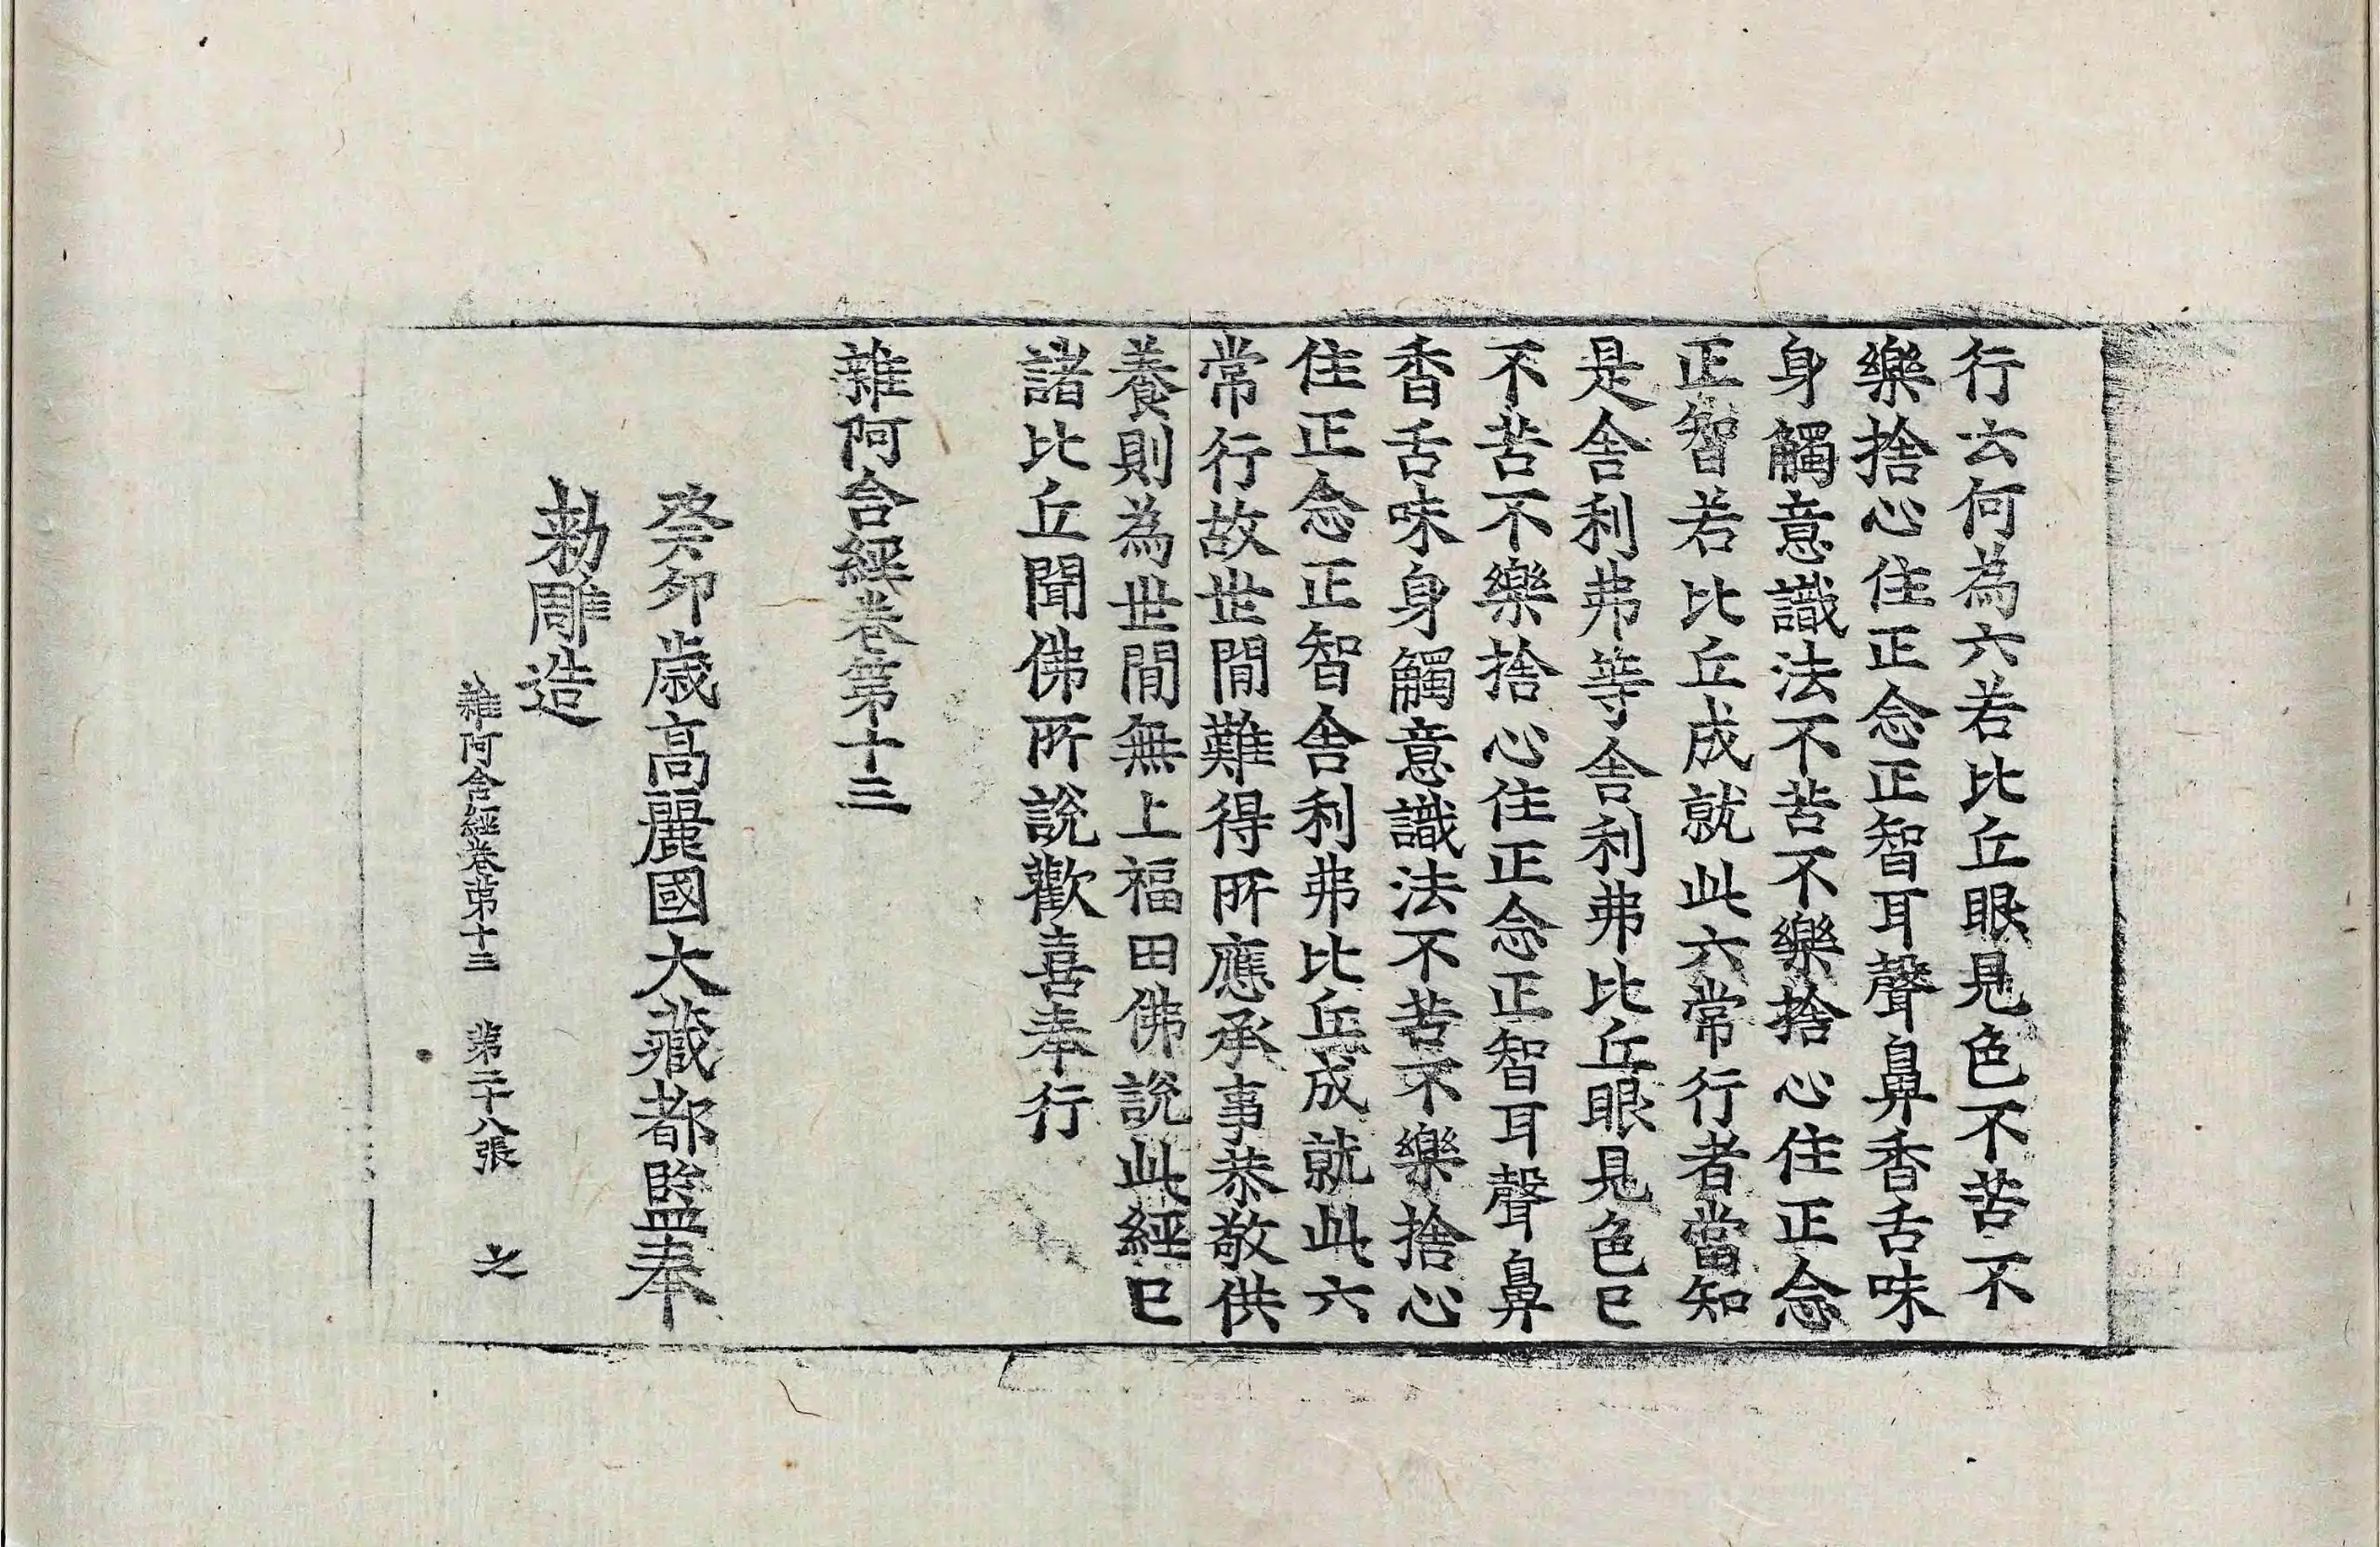 行云何為六若比丘眼見色不苦不
樂捨心住正念正智耳聲鼻香舌味
身觸意識法不苦不樂捨心住正念
正智若比丘成就此六常行者當知
是舍利弗等舍利弗比丘眼見色已
不苦不樂捨心住正念正智耳聲鼻
香舌味身觸意識法不苦不樂捨心
住正念正智舍利弗比丘成就此六
常行故世間難得所應承事恭敬供
養則為世間無上福田佛說此經已
諸比丘聞佛所說歡喜奉行
雜阿含經卷第十三
癸卯歲高麗國大藏都監奉
勅雕造
雜阿含經卷第十三 第二十八張 之